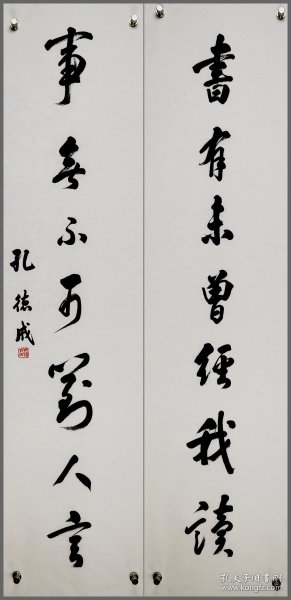 書有未曾經我讀
事無不可對人言
孔德成
孔夫子旧书网
www.kongfz.com